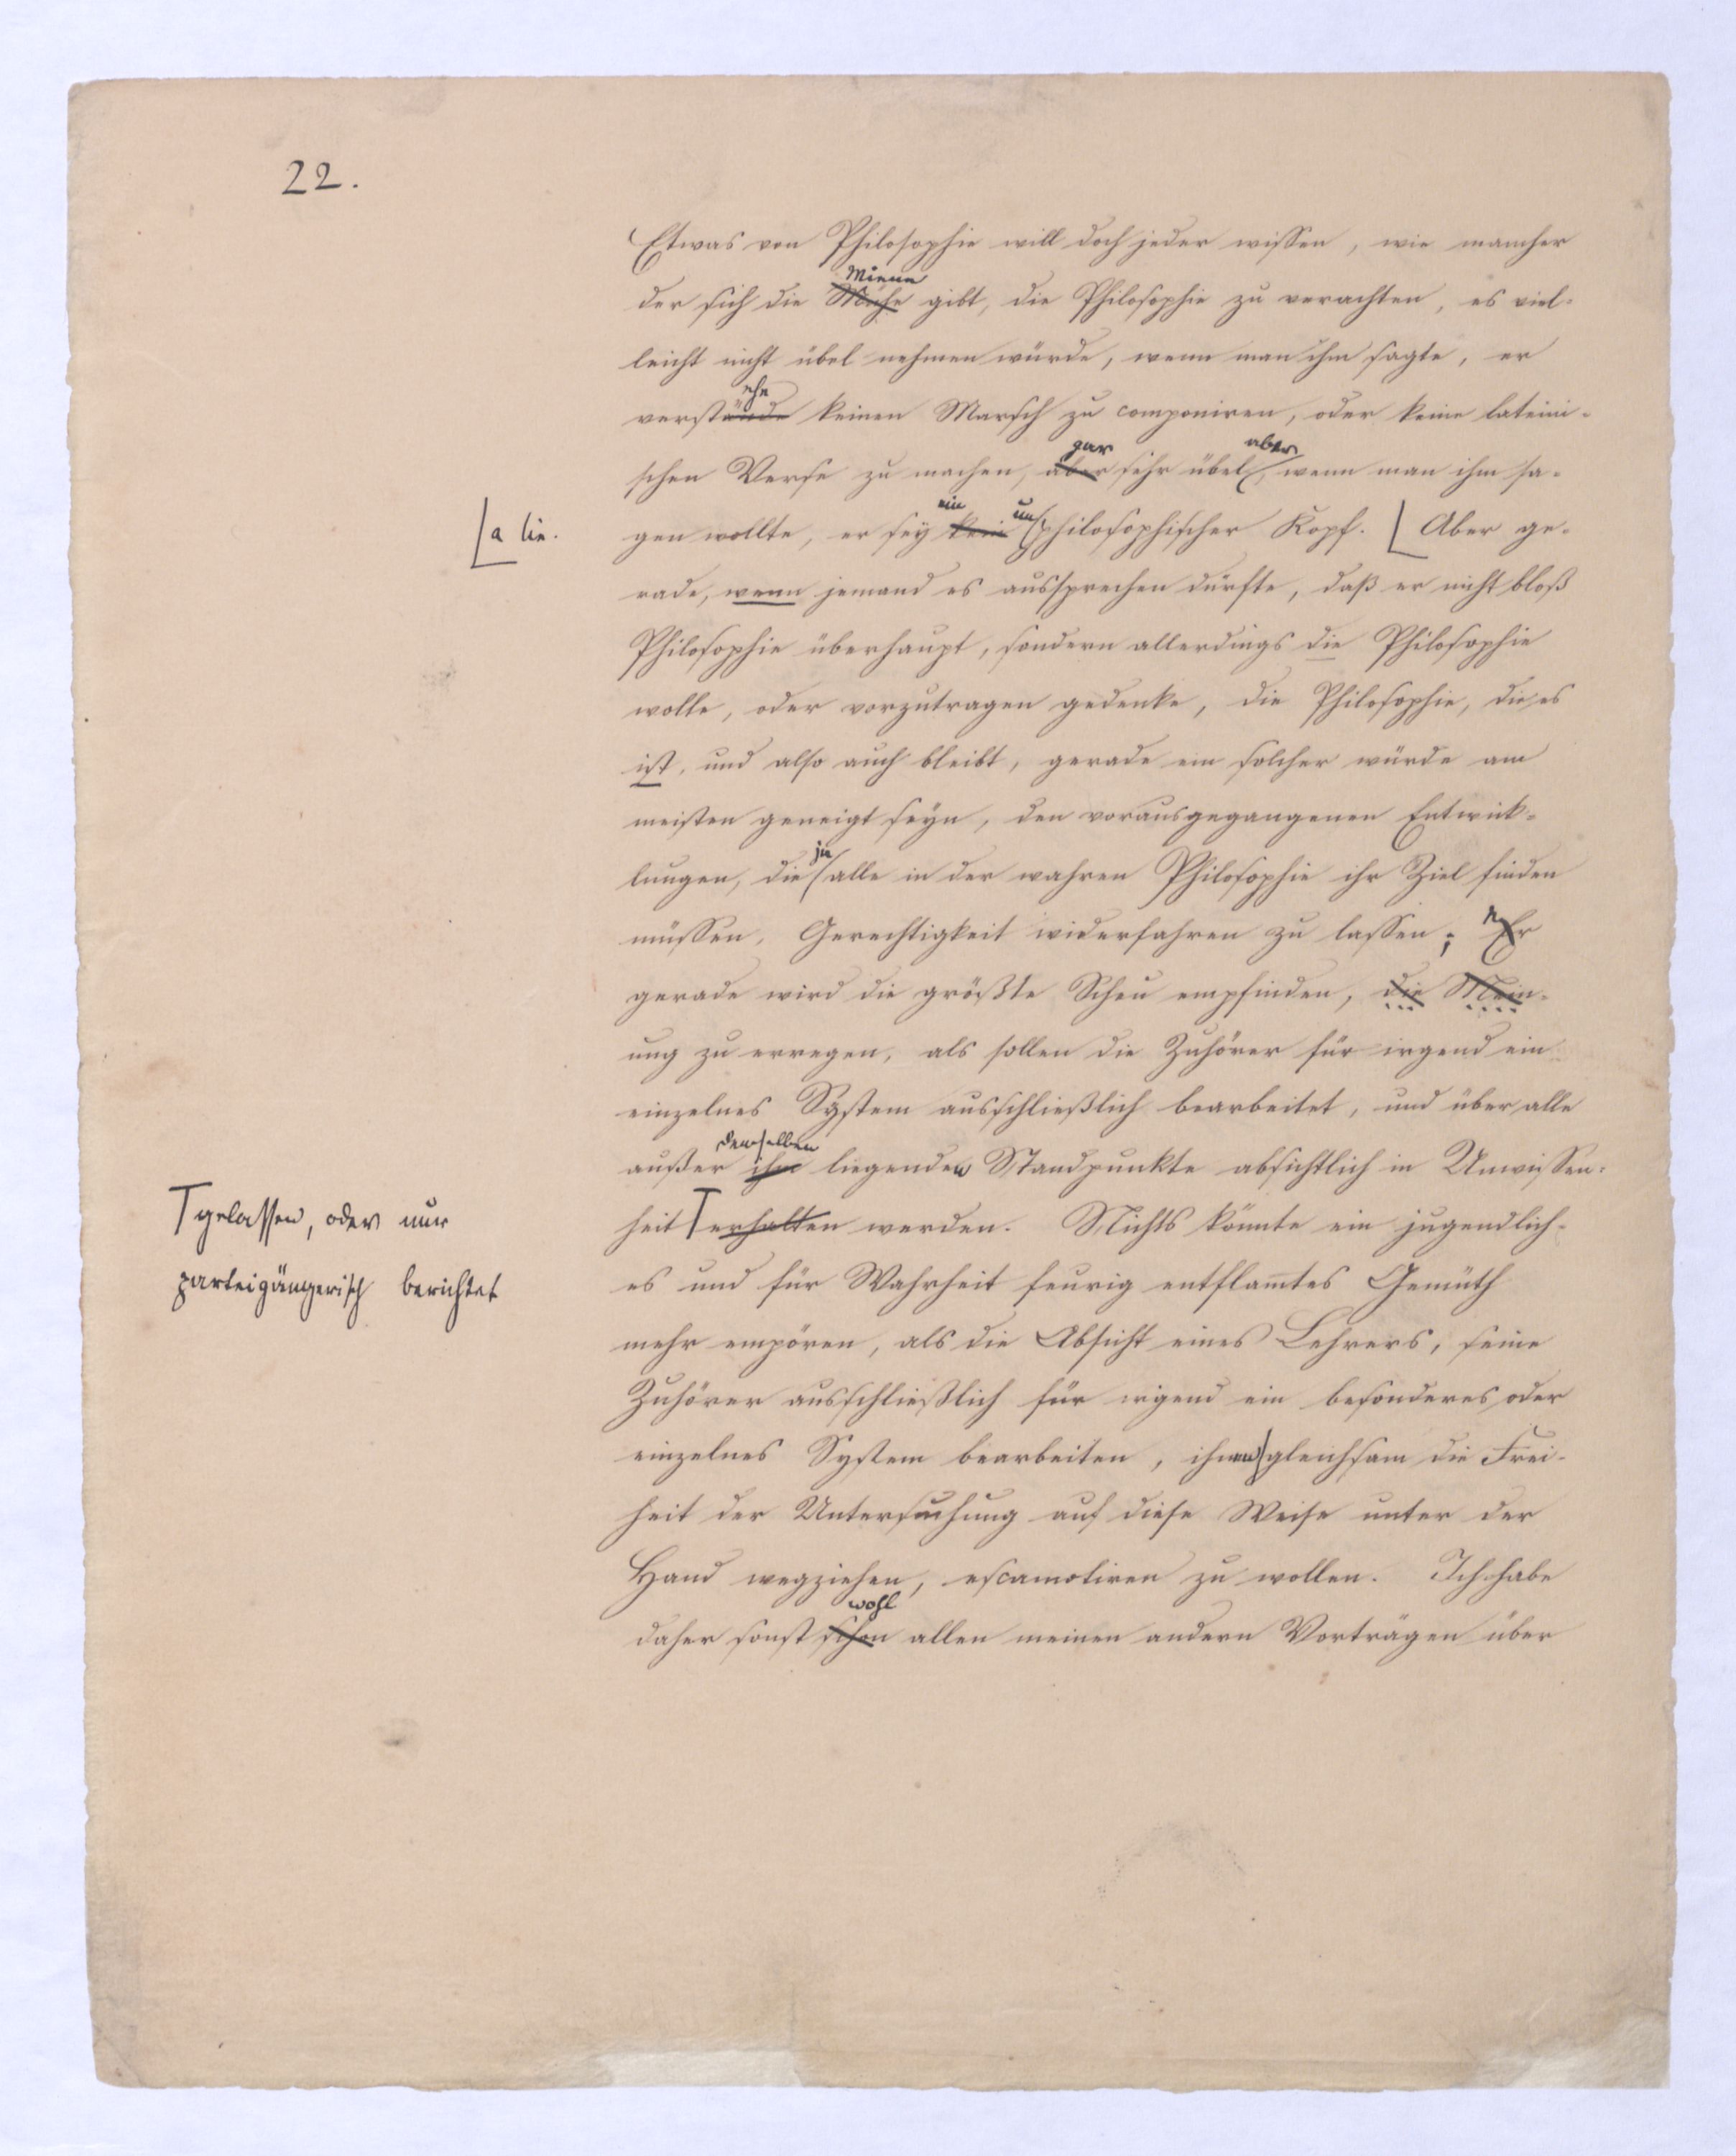 22.
Etwas von Philosophie will doch jeder wissen, wie mancher
Miene
der sich die Mühe gibt, die Philosophie zu verachten, es viel-
leicht nicht übel nehmen würde, wenn man ihm sagte, er
ehe
verstände keinen Marsch zu componiren, oder keine lateini-
gar aber
schen Verse zu machen, aber sehr übel, wenn man ihm sa-
ein un
a lin. gen wollte, er sey kein philosophischer Kopf. Aber ge-
rade, wenn jemand es aussprechen dürfte, daß er nicht bloß
Philosophie überhaupt, sondern allerdings die Philosophie
wolle, oder vorzutragen gedenke, die Philosophie, die es
ist, und also auch bleibt, gerade ein solcher würde am
meisten geneigt seyn, den vorausgegangenen Entwick-
ja
lungen, die alle in der wahren Philosophie ihr Ziel finden
müssen, Gerechtigkeit widerfahren zu lassen; Er
gerade wird die größte Scheu empfinden, die Mein-
ung zu erregen, als sollen die Zuhörer für irgend ein
einzelnes System ausschließlich bearbeitet, und über alle
demselben
außer ihm liegenden Standpunkte absichtlich in Unwissen-
heit erhalten werden. Nichts könnte ein jugendlich-
gelassen, oder nur
parteigängerisch berichtet
es und für Wahrheit feurig entflam̅tes Gemüth
mehr empören, als die Absicht eines Lehrers, seine
Zuhörer ausschließlich für irgend ein besonderes oder
einzelnes System bearbeiten, ihnen gleichsam die Frei-
heit der Untersuchung auf diese Weise unter der
Hand wegziehen, escamotiren zu wollen. Ich habe
wohl
daher sonst schon allen meinen andern Vorträgen über